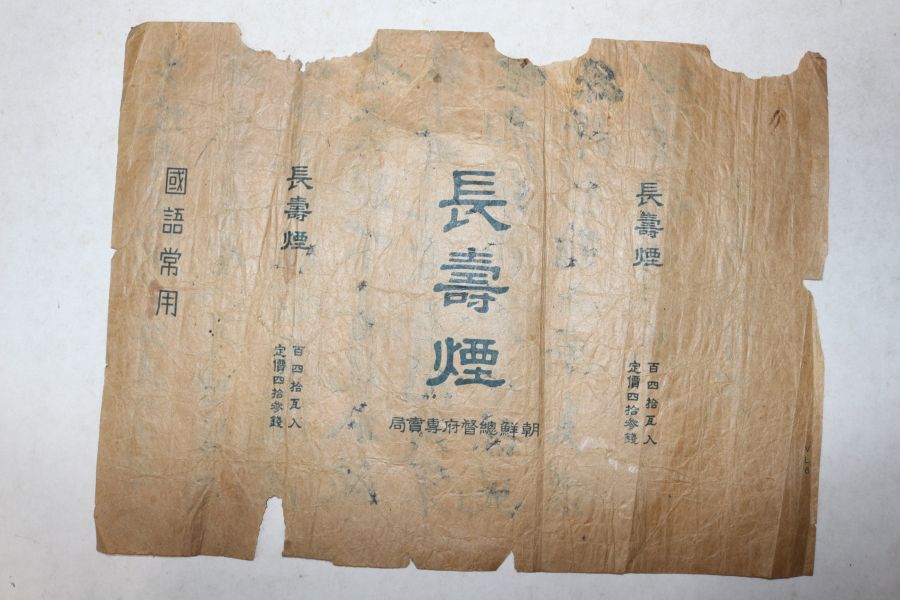 長壽煙
百四拾瓦入
定價四拾參錢
長壽煙
朝鮮總督府專賣局
長壽煙
百四拾瓦入
定價四拾參錢
國語常用